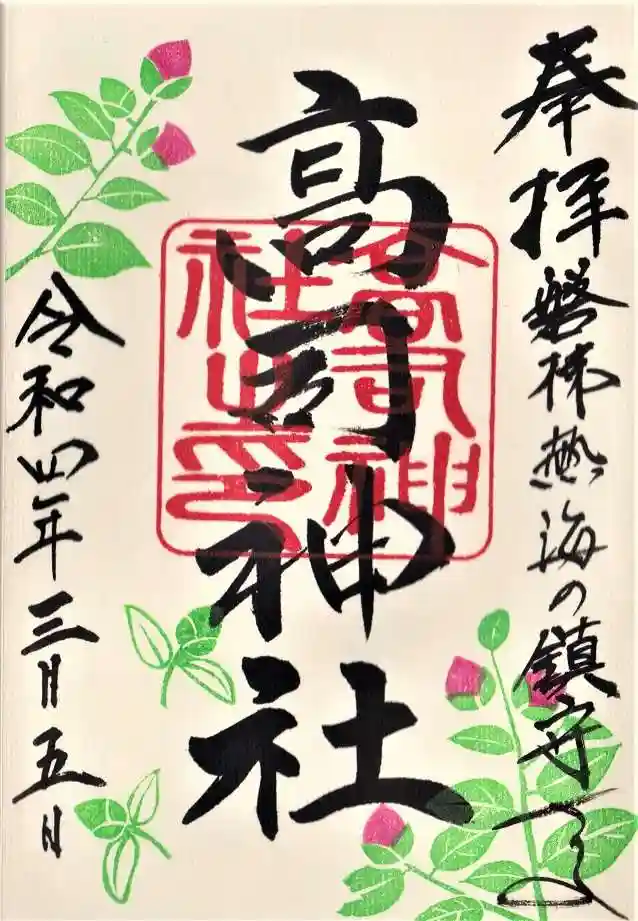 奉拝 磐梯熱海の鎮守
高司神社
高司神社之印
令和四年三月五日